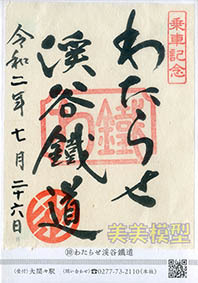 乗車記念
わたらせ
渓谷鐵道
令和二年七月二十六日
鐵
美美模型
⑩わたらせ渓谷鐵道
(受付)大間々駅 (問い合わせ)☎0277-73-2110(本社)